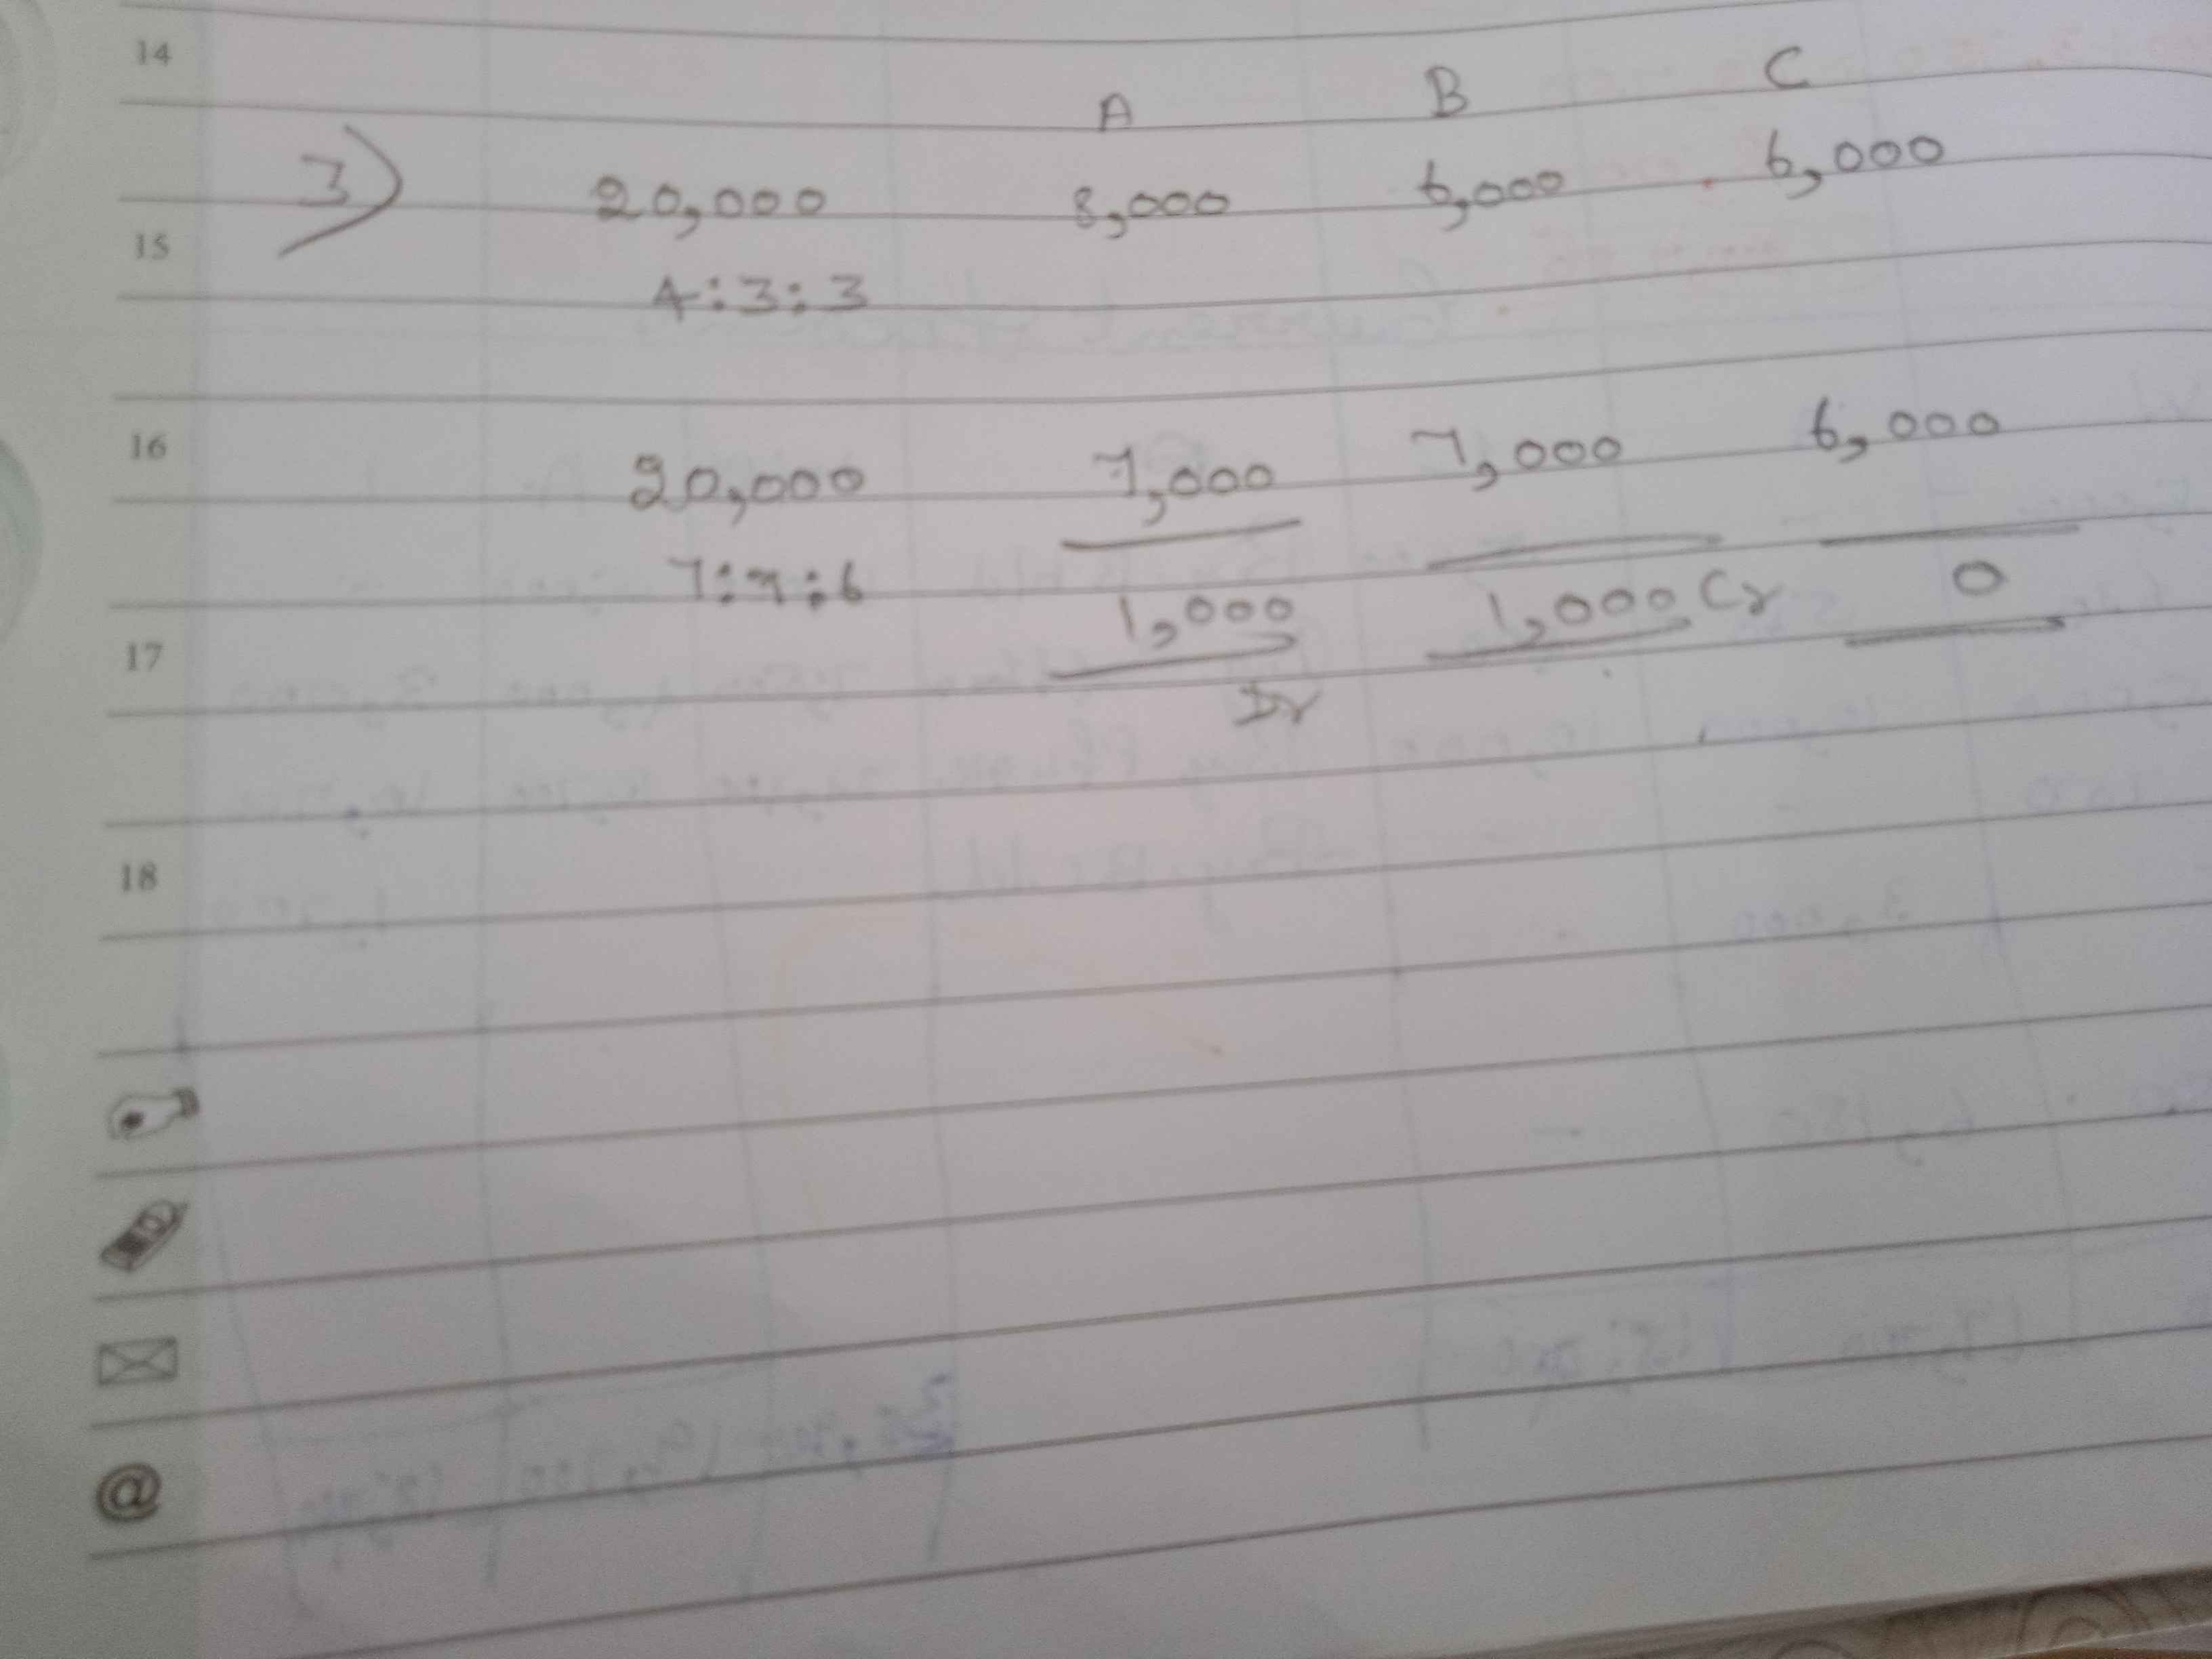 14
A B C
3) 20,000 8,000 6,000 6,000
15
4:3:3
16
20,000 7,000 7,000 6,000
7:7:6
1,000 1,000 Cr 0
17
Dr
18
@